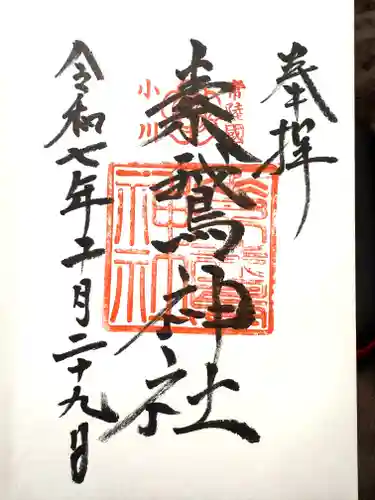 奉拝
常陸國
小川
素鵞神社
神社
令和七年十一月二十九日